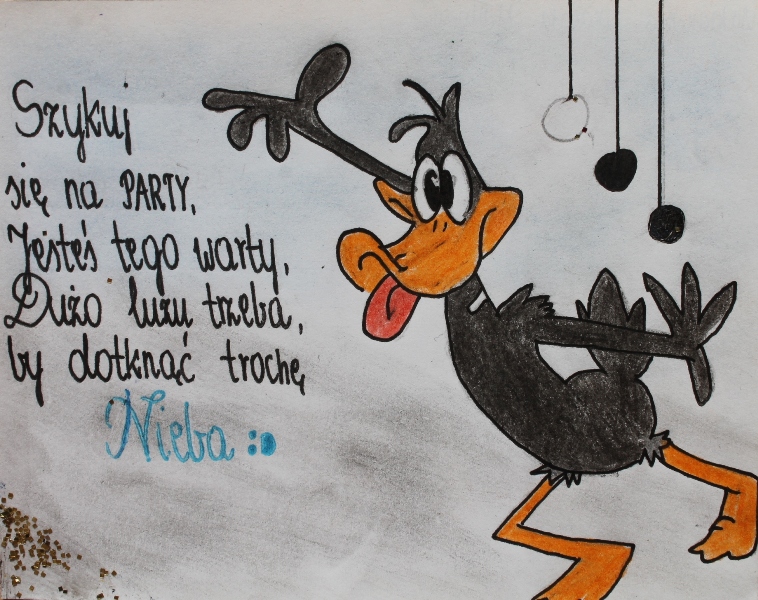 Szykuj
się na PARTY,
Jesteś tego warty,
Dużo luzu trzeba,
by dotknąć trochę
Nieba :D